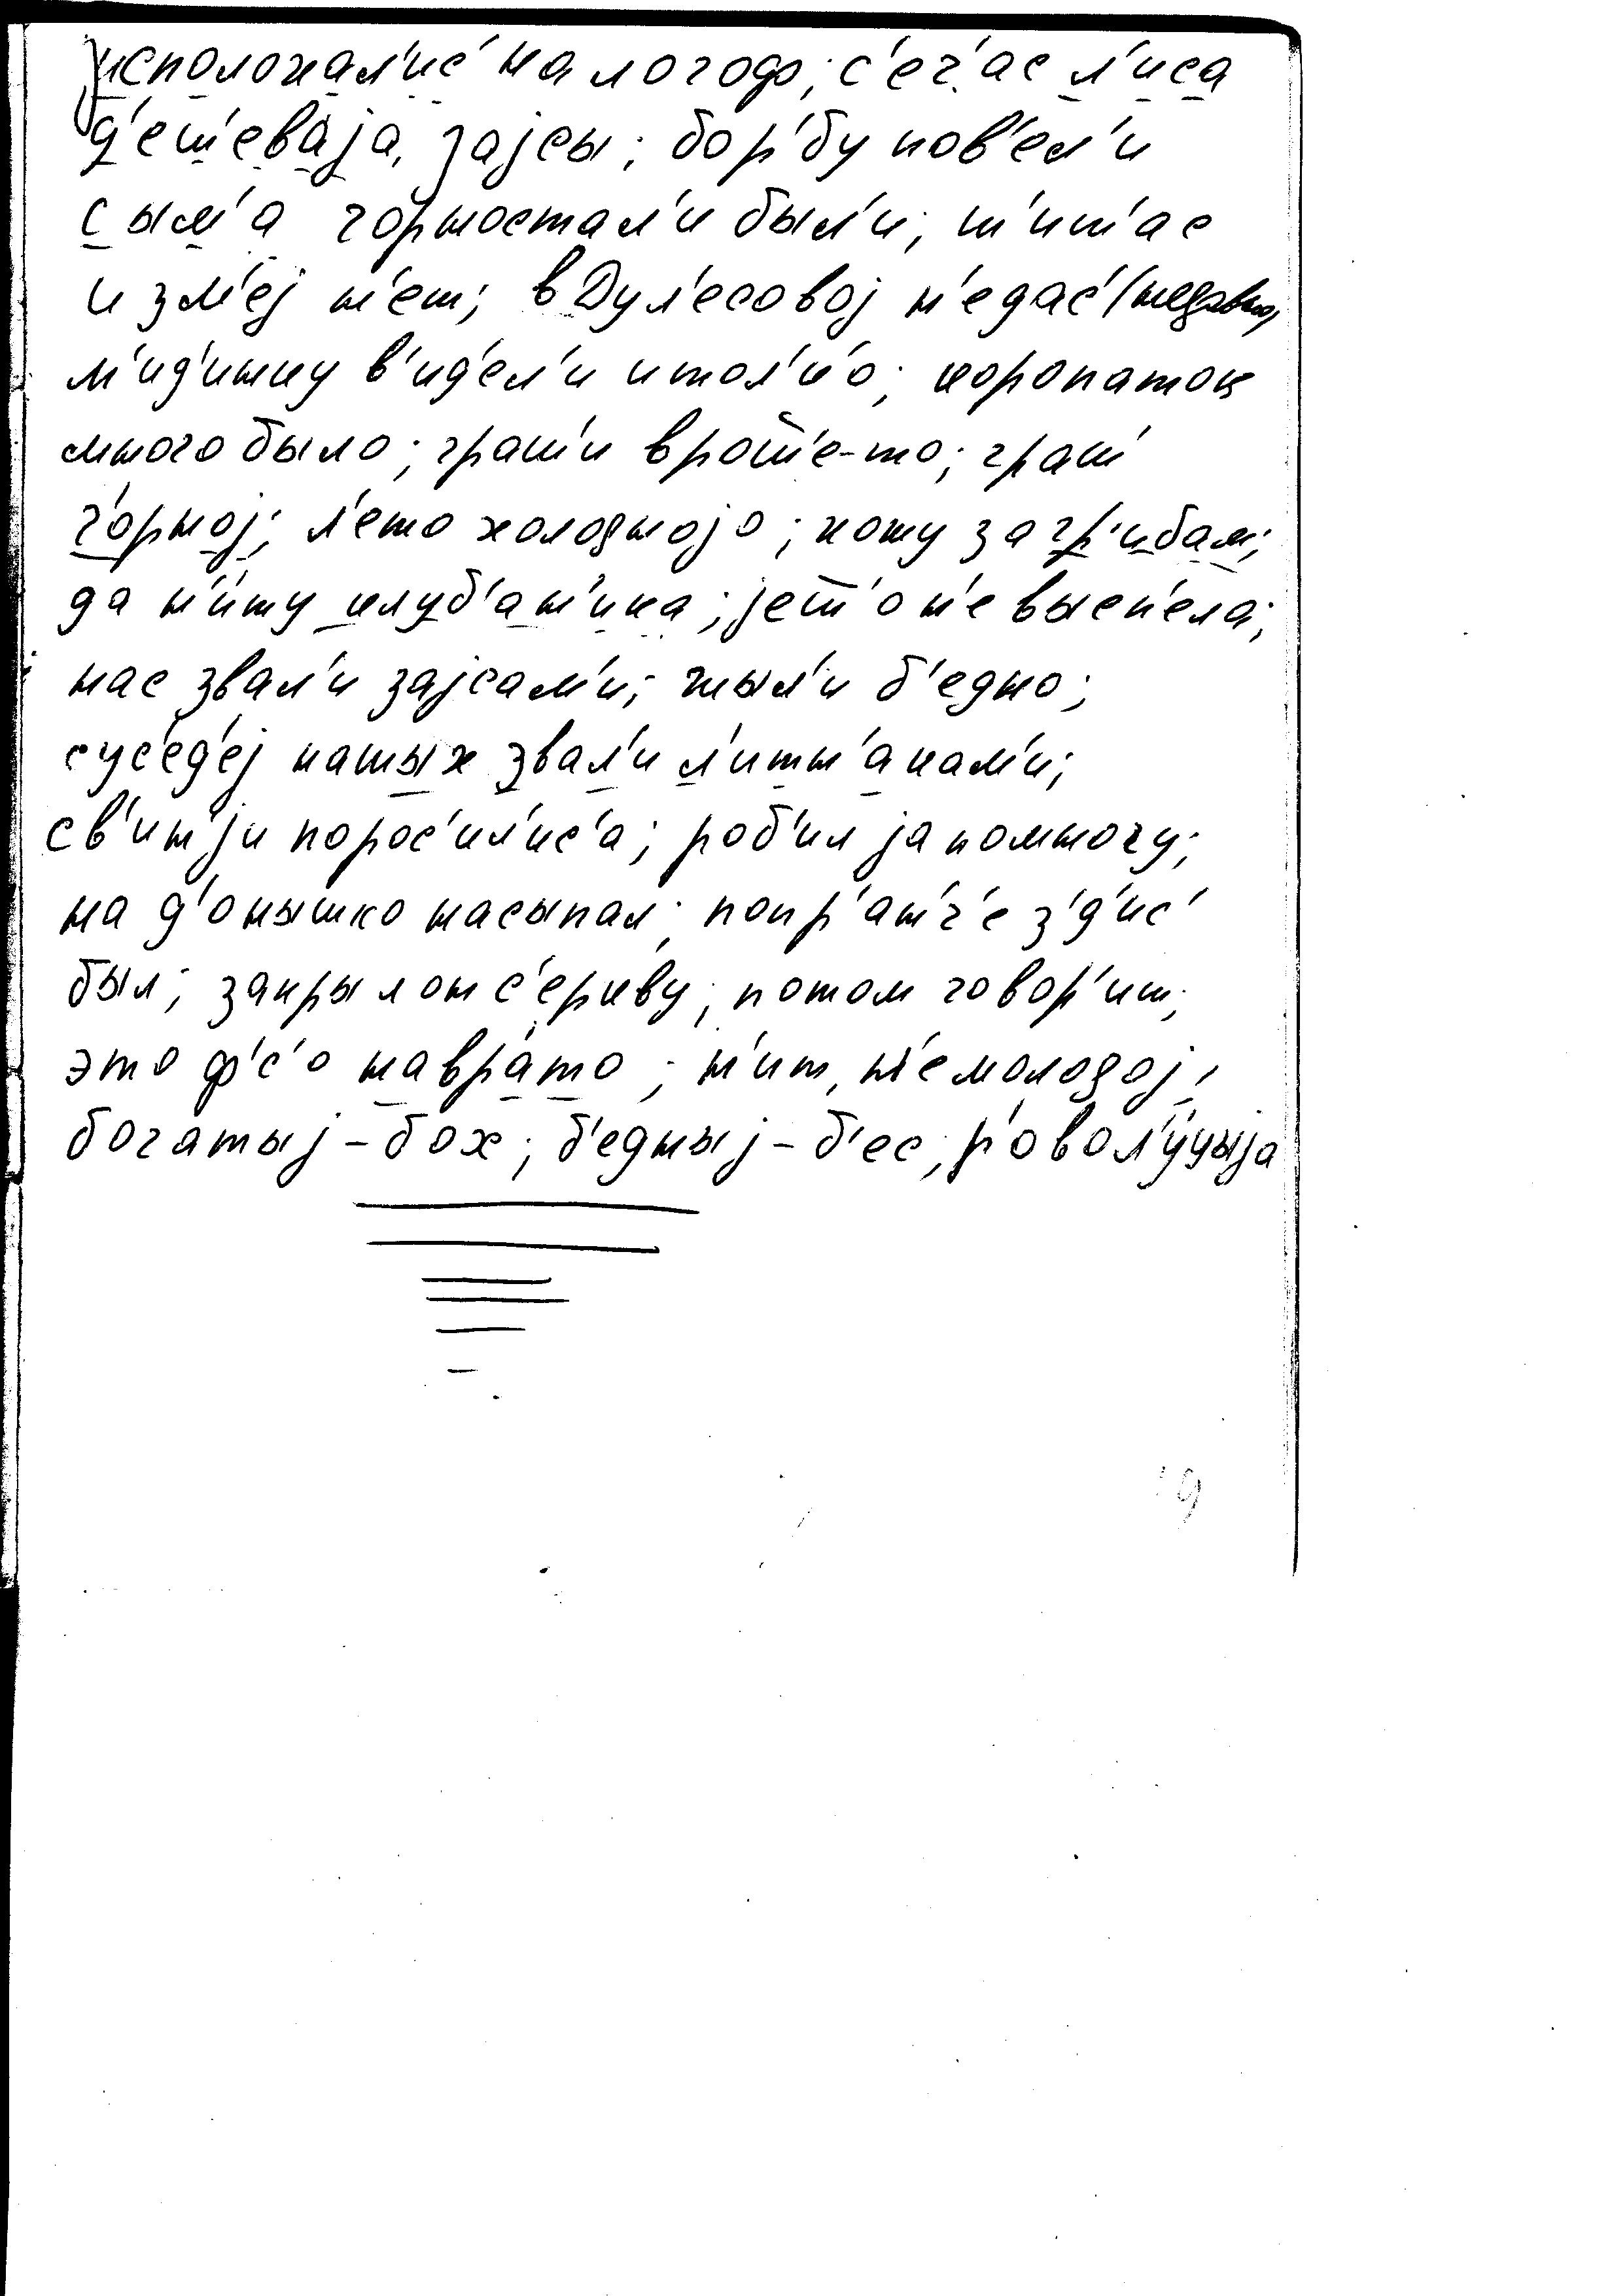 исполохал'ис' на логоф; с'еч'ас л'иса
д'ет'еваjа, зајсы; бор'бу пов'ел'и
с ым'а горностал'и был'и; т'ип'ас
и зм'еj н'ет; в Дул'есовоj н'едас' (недавно)
м'ид'ишку в'ид'ел'и и тол'к'о; коропаток
много было; грат'и в рот'е-то; грат'
ч'орноj; л'ето холодноjо; хожу за гр'ибам;
да н'иту клуб'ан'ика; jет'о н'е высп'ела;
нас звал'и заjсам'и; жыл'и б'едно;
сус'ед'еj нашых звал'и л'итв'акам'и;
св'ин'jи порос'ил'ис'а; роб'ил jа помногу;
на д'онышко насыпал; попр'ат'ч'е з'д'ис'
был; закрыл он с'еркву; потом говор'ит;
это ф'с'о наврато; н'ит, н'е молодоj;
богатыj – бох; б'едныj – б'ес; р'овол'уцыjа